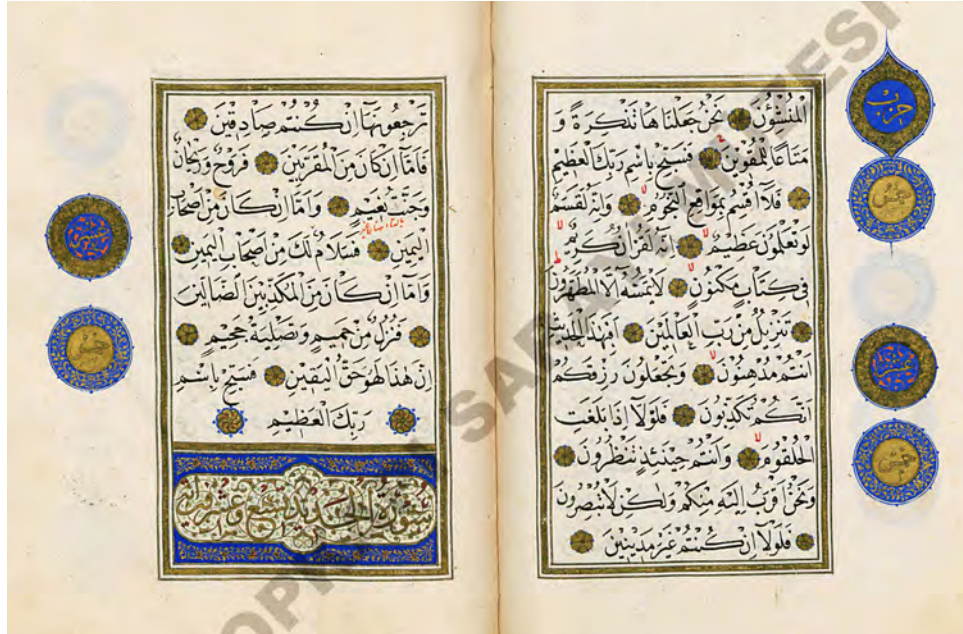 الْمُنْشِئُونَ نَحْنُ جَعَلْنَاهَا تَذْكِرَةً وَ
مَتَاعًا لِلْمُقْوِينَ فَسَبِّحْ بِاسْمِ رَبِّكَ الْعَظِيمِ
فَلَآ اُقْسِمُ بِمَوَاقِعِ النُّجُومِ وَاِنَّهُ لَقَسَمٌ
لَوْ تَعْلَمُونَ عَظِيمٌ اِنَّهُ لَقُرْاٰنٌ كَرِيمٌ
فِي كِتَابٍ مَكْنُونٍ لَا يَمَسُّهُ اِلَّا الْمُطَهَّرُونَ
تَنْزِيلٌ مِنْ رَبِّ الْعَالَمِينَ اَفَبِهٰذَا الْحَدِيثِ
اَنْتُمْ مُدْهِنُونَ وَتَجْعَلُونَ رِزْقَكُمْ
اَنَّكُمْ تُكَذِّبُونَ فَلَوْلَآ اِذَا بَلَغَتِ
الْحُلْقُومَ وَاَنْتُمْ حِينَئِذٍ تَنْظُرُونَ
وَنَحْنُ اَقْرَبُ اِلَيْهِ مِنْكُمْ وَلٰكِنْ لَا تُبْصِرُونَ
فَلَوْلَآ اِنْ كُنْتُمْ غَيْرَ مَدِينِينَ
حزب
خمس
عشر
خمس
تَرْجِعُونَهَآ اِنْ كُنْتُمْ صَادِقِينَ
فَاَمَّآ اِنْ كَانَ مِنَ الْمُقَرَّبِينَ فَرَوْحٌ وَرَيْحَانٌ
وَجَنَّةُ نَعِيمٍ وَاَمَّآ اِنْ كَانَ مِنْ اَصْحَابِ
الْيَمِينِ فَسَلَامٌ لَكَ مِنْ اَصْحَابِ الْيَمِينِ
وَاَمَّآ اِنْ كَانَ مِنَ الْمُكَذِّبِينَ الضَّآلِّينَ
فَنُزُلٌ مِنْ حَمِيمٍ وَتَصْلِيَةُ جَحِيمٍ
اِنَّ هٰذَا لَهُوَ حَقُّ الْيَقِينِ فَسَبِّحْ بِاسْمِ
رَبِّكَ الْعَظِيمِ
سورة الحديد تسع وعشرون اية
عشر
خمس
SARAYI